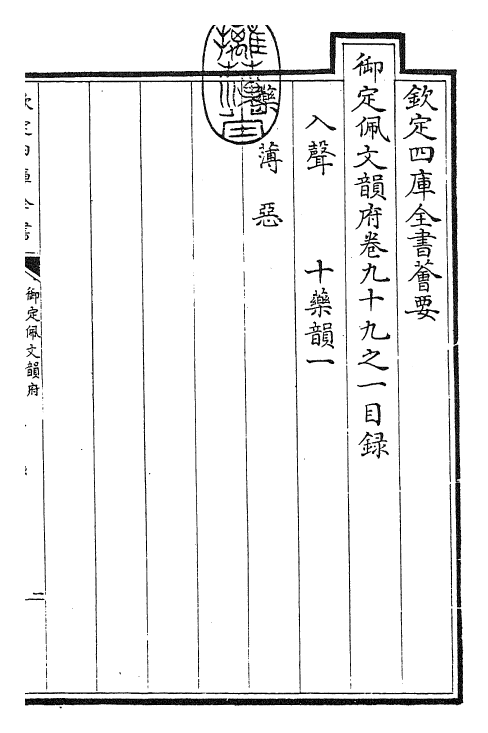 欽定四庫全書薈要
御定佩文韻府卷九十九之一目録
入聲　十藥韻一
藥　薄　惡
欽定四庫全書
御定佩文韻府
二